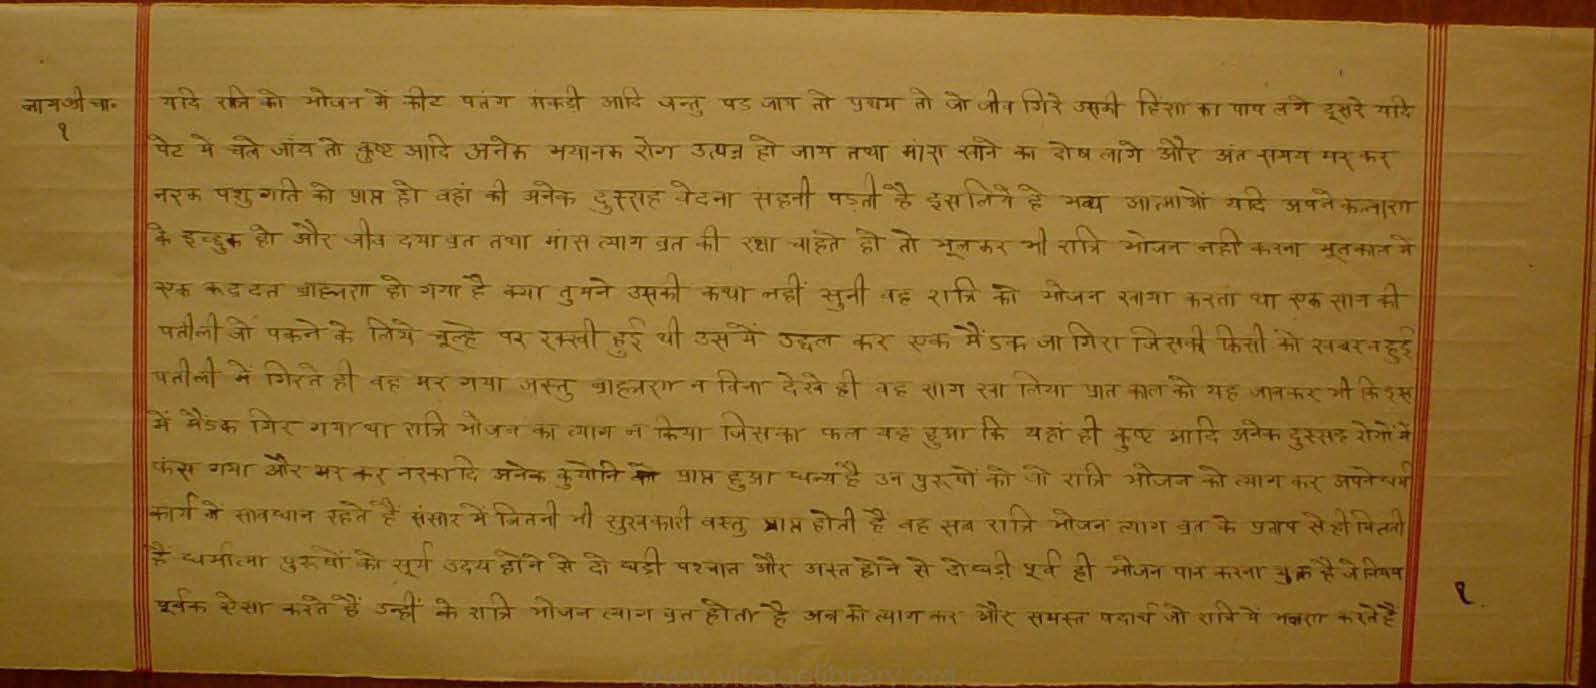 नागश्री चा॰
१
यदि रात्रि को भोजन में कीट पतंग मकडी आदि जन्तु पड जाय तो प्रथम तो जो जीव गिरे उसकी हिंसा का पाप लगे दूसरे यदि
पेट में चले जांय तो कुष्ट आदि अनेक भयानक रोग उत्पन्न हो जाय तथा मांस खाने का दोष लागे और अंत समय मर कर
नरक पशु गति को प्राप्त हो वहां की अनेक दुस्सह वेदना सहनी पड़ती है इसलिये हे भव्य आत्माओं यदि अपने कल्याण
के इच्छुक हो और जीव दया व्रत तथा मांस त्याग व्रत की रक्षा चाहते हो तो भूलकर भी रात्रि भोजन नही करना भूतकाल में
एक ब्राह्मण हो गया है क्या तुमने उसकी कथा नहीं सुनी वह रात्रि को भोजन खाया करता था एक साग की
पतीली जो पकने के लिये चूल्हे पर रक्खी हुई थी उस में उछल कर एक मैंडक जा गिरा जिसकी किसी को खबर न हुई
पतीली में गिरते ही वह मर गया अस्तु ब्राह्मण न बिना देखे ही वह साग खा लिया प्रात काल को यह जानकर भी कि इस
में मैंडक गिर गया था रात्रि भोजन का त्याग न किया जिसका फल यह हुआ कि यहां ही कुष्ट आदि अनेक दुस्सह रोगों में
फंस गया और मर कर नरकादि अनेक कुयोनि को प्राप्त हुआ धन्य है उन पुरुषों को जो रात्रि भोजन को त्याग कर अपने धर्म
कार्य में सावधान रहते है संसार में जितनी भी सुखकारी वस्तु प्राप्त होती हैं वह सब रात्रि भोजन त्याग व्रत के प्रताप से ही मिलती
है धर्मात्मा पुरुषों को सूर्य उदय होने से दो घड़ी पश्चात और अस्त होने से दो घड़ी पूर्व ही भोजन पान करना युक्त है जे नियम
पूर्वक ऐसा करते हैं उन्हीं के रात्रि भोजन त्याग व्रत होता है अन्न को त्याग कर और समस्त पदार्थ जो रात्रि में भक्षण करते है
१
www.vitragelibrary.org